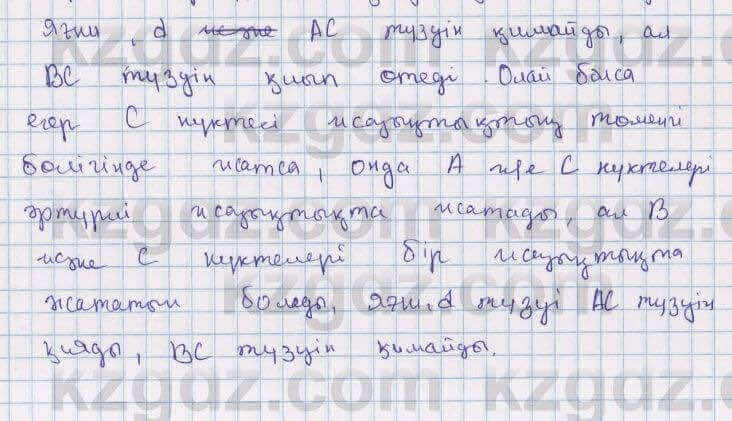 Яғни, d және АС түзуін қимайды, ал
ВС түзуін қиып өтеді. Олай болса
егер С нүктесі жазықтықтың төменгі
бөлігінде жатса, онда А және С нүктелері
әртүрлі жазықтықта жатады, ал В
және С нүктелері бір жазықтықта
жататын болады, яғни, d түзуі АС түзуін
қияды, ВС түзуін қимайды.
kzgdz.com